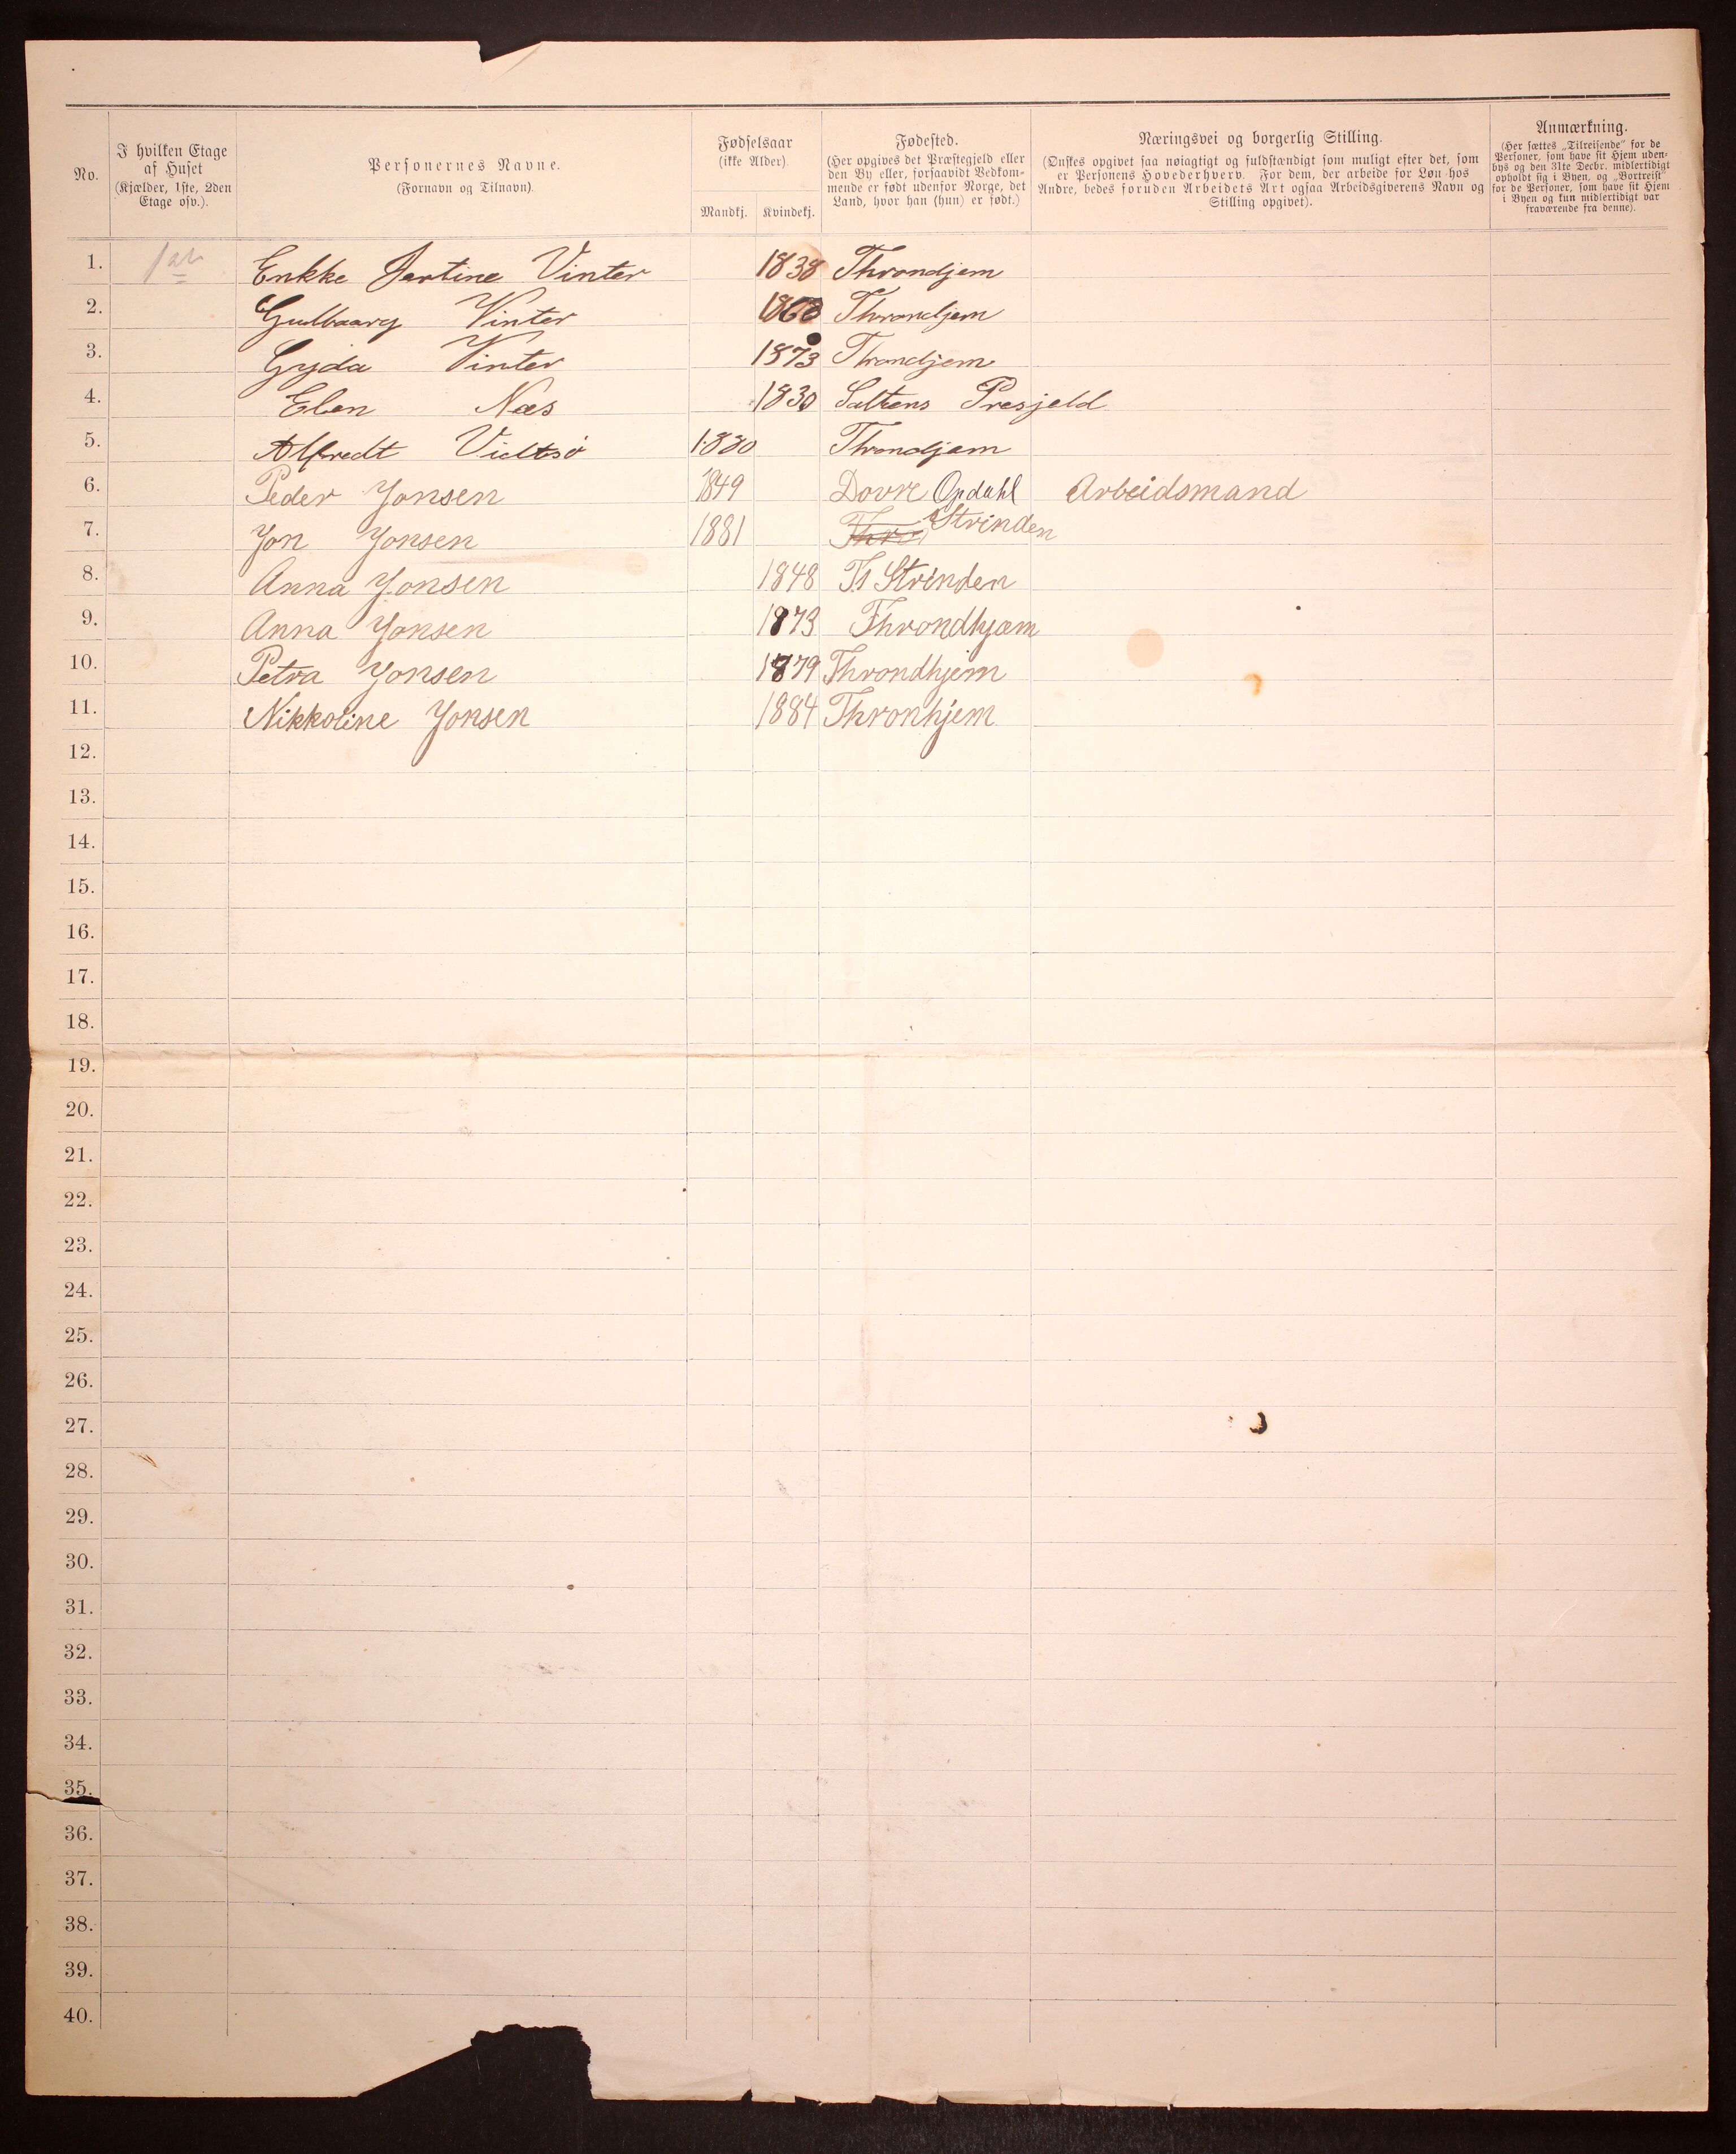 No.
I hvilken Etage af Huset (Kjælder, 1ste, 2den Etage osv.).
Personernes Navne. (Fornavn og Tilnavn).
Fødselsaar (ikke Alder).
Mandkj. Kvindekj.
Fødested. (Her opgives det Præstegjeld eller den By eller, forsaavidt Vedkommende er født udenfor Norge, det Land, hvor han (hun) er født.)
Næringsvei og borgerlig Stilling. (Ønskes opgivet saa nøiagtigt og fuldstændigt som muligt efter det, som er Personens Hovederhverv. For dem, der arbeide for Løn hos Andre, bedes foruden Arbeidets Art ogsaa Arbeidsgiverens Navn og Stilling opgivet).
Anmærkning. (Her sættes „Tilreisende" for de Personer, som have sit Hjem udenbys og den 31te Decbr. midlertidigt opholdt sig i Byen, og „Bortreist" for de Personer, som have sit Hjem i Byen og kun midlertidigt var fraværende fra denne).
1. Enkke Vinter 1838 Throndjem
2. Gulbaarg Vinter 1860 Throndjem
3. Gyda Vinter 1873 Throndjem
4. Elen Næs 1830 Saltens Presjeld
5. Alfredt 1880 Throndjem
6. Peder Yonsen 1849 Dovre Opdahl Arbeidsmand
7. Jon Yonsen 1881 Strinden
8. Anna Yonsen 1848 Strinden
9. Anna Yonsen 1873 Throndhjæm
10. Petra Yonsen 1879 Throndhjem
11. Nikkoline Yonsen 1884 Thronhjem
12.
13.
14.
15.
16.
17.
18.
19.
20.
21.
22.
23.
24.
25.
26.
27.
28.
29.
30.
31.
32.
33.
34.
35.
36.
37.
38.
39.
40.